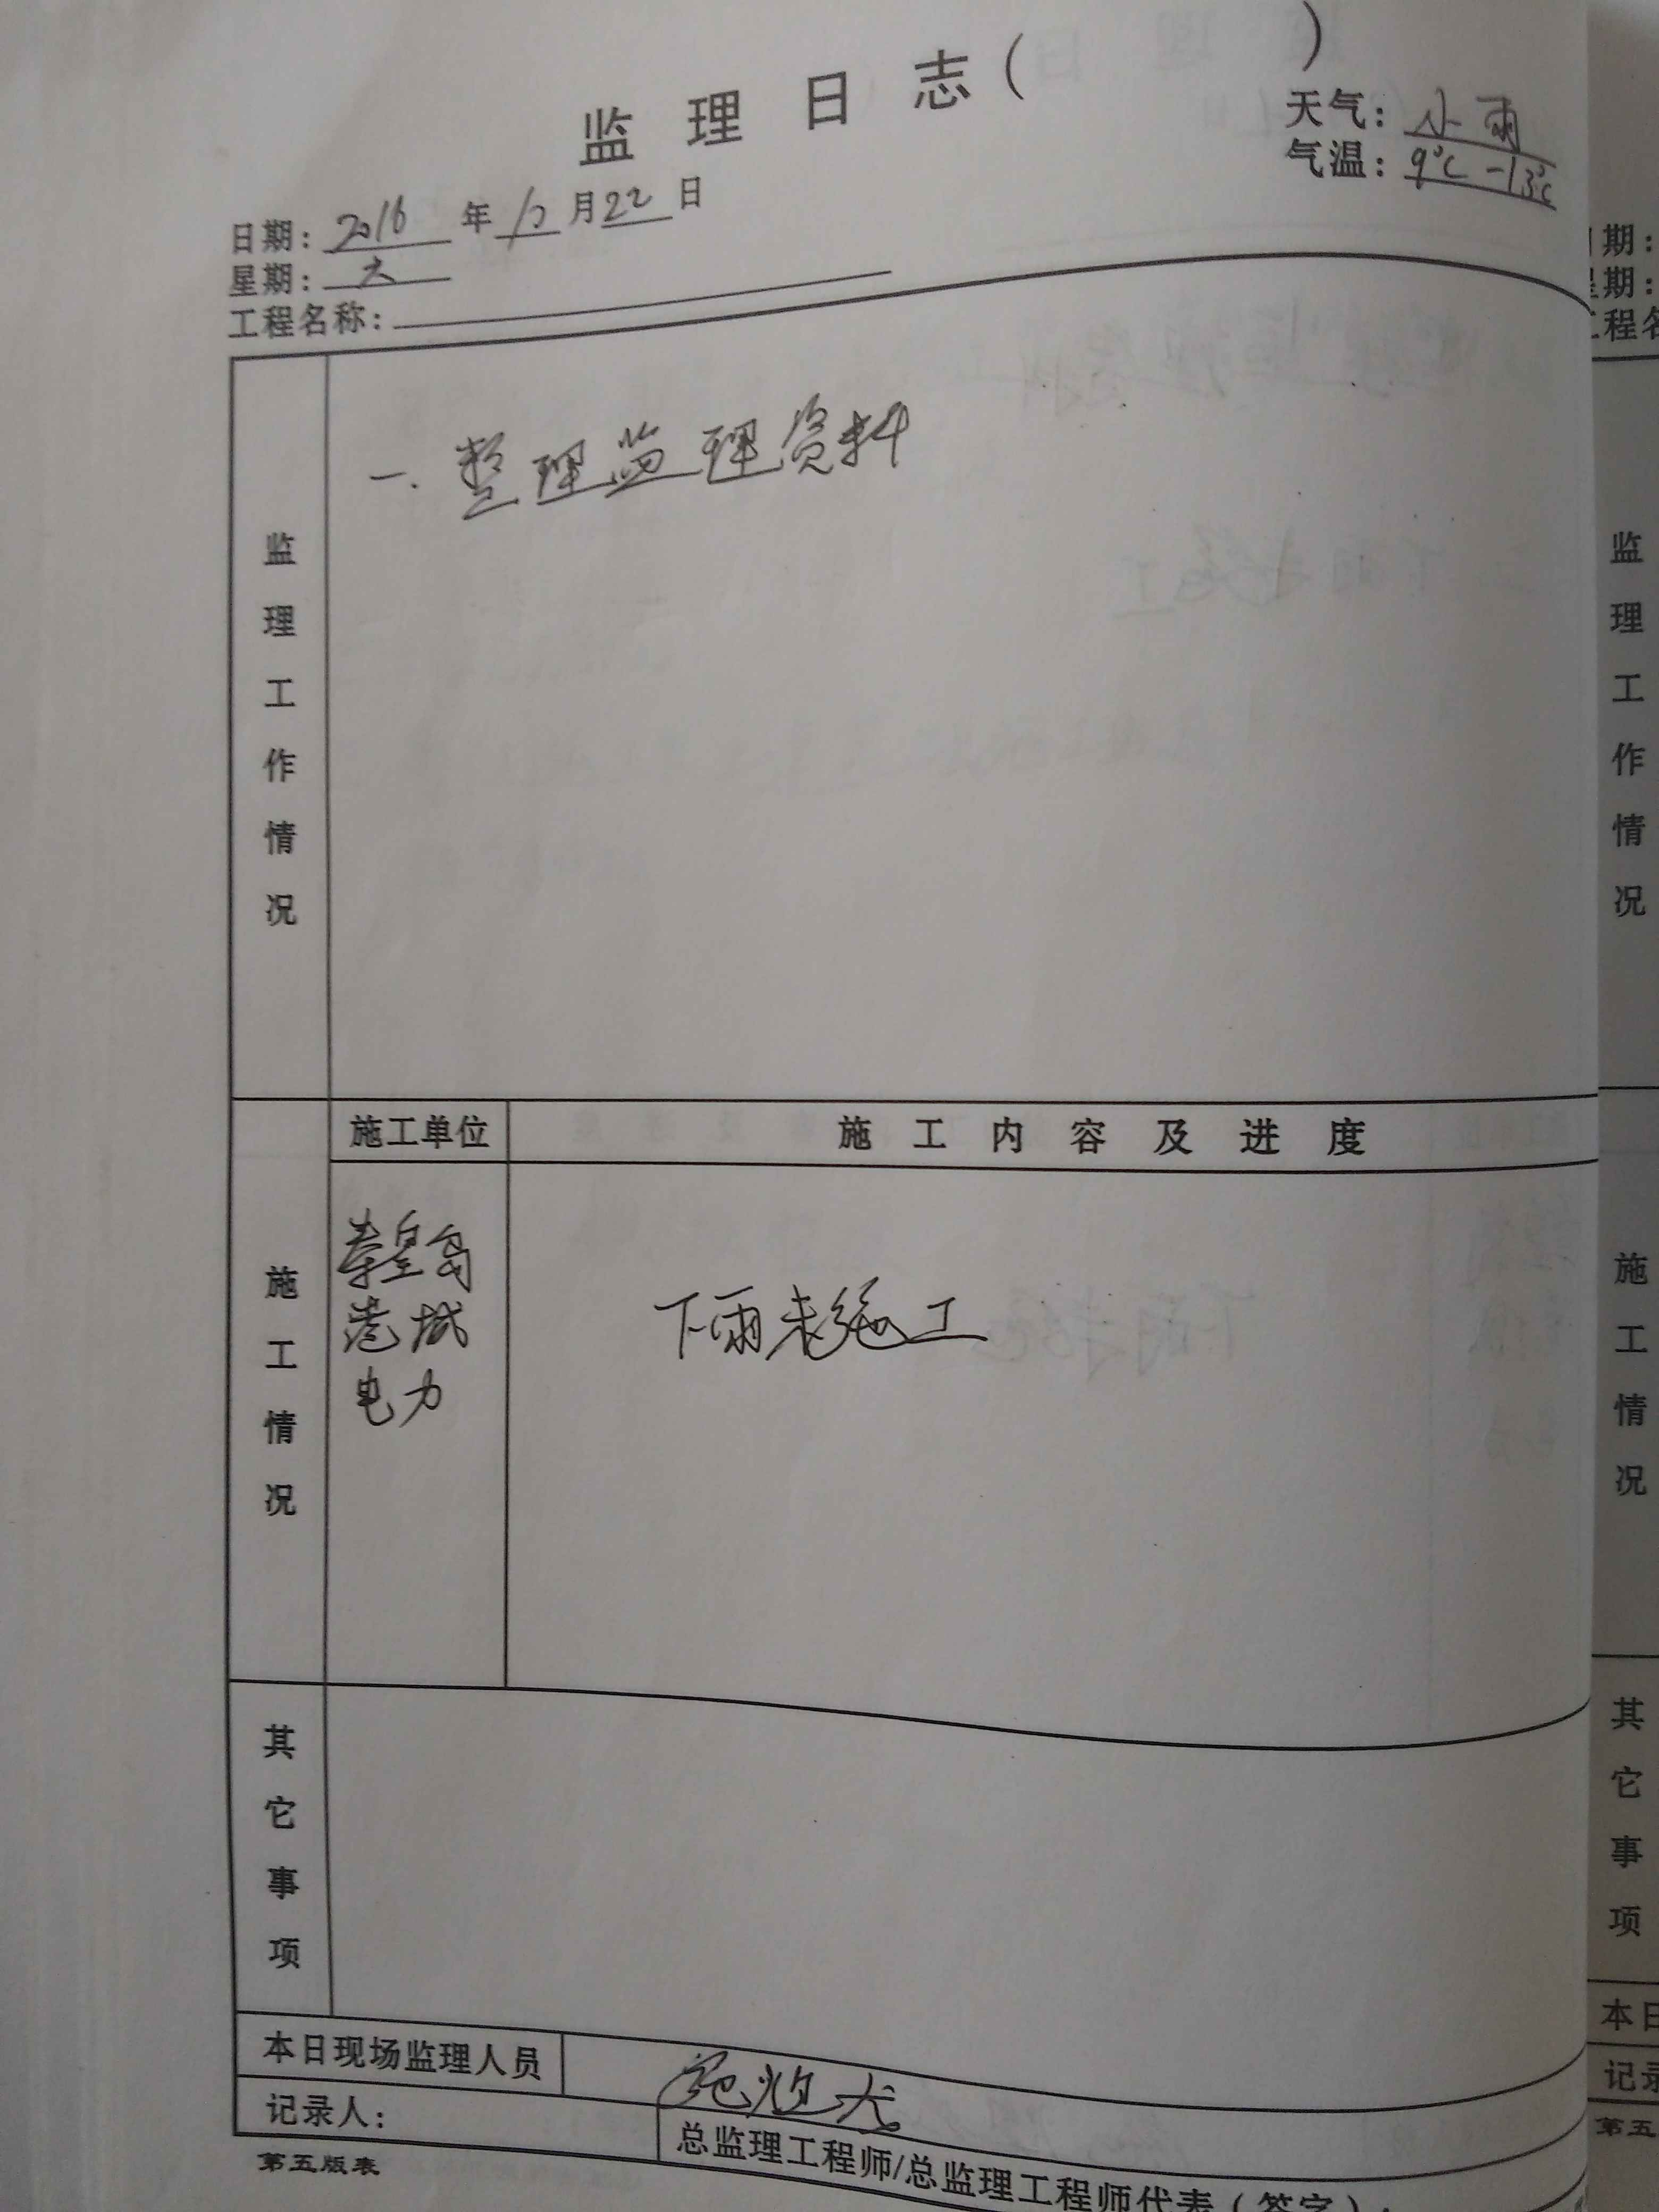 监理日志( )
天气: 小雨
气温: 9℃-13℃
日期: 2016 年 10 月 22 日
星期: 六
工程名称:
监理工作情况
一. 整理监理资料
施工单位
施工内容及进度
施工情况
秦皇岛
港城
电力
下雨未施工
其它事项
本日现场监理人员
记录人:
总监理工程师/总监理工程师代表(签字):
第五版表
期:
期:
程名
监理工作情况
施工情况
其它事项
本日
记录
第五